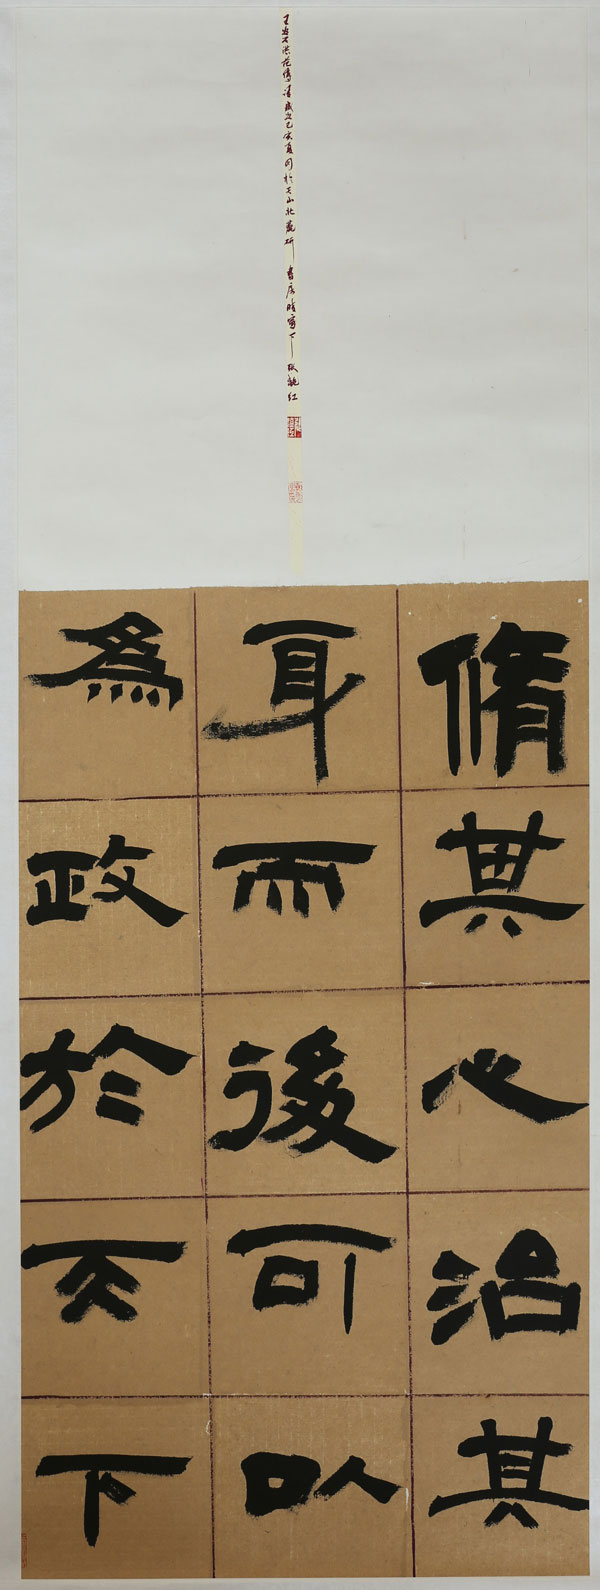 脩其心治其
身而後可以
為政於天下
王安石洪范傳語歲次己亥夏月於天山北麓研書房晴窗下